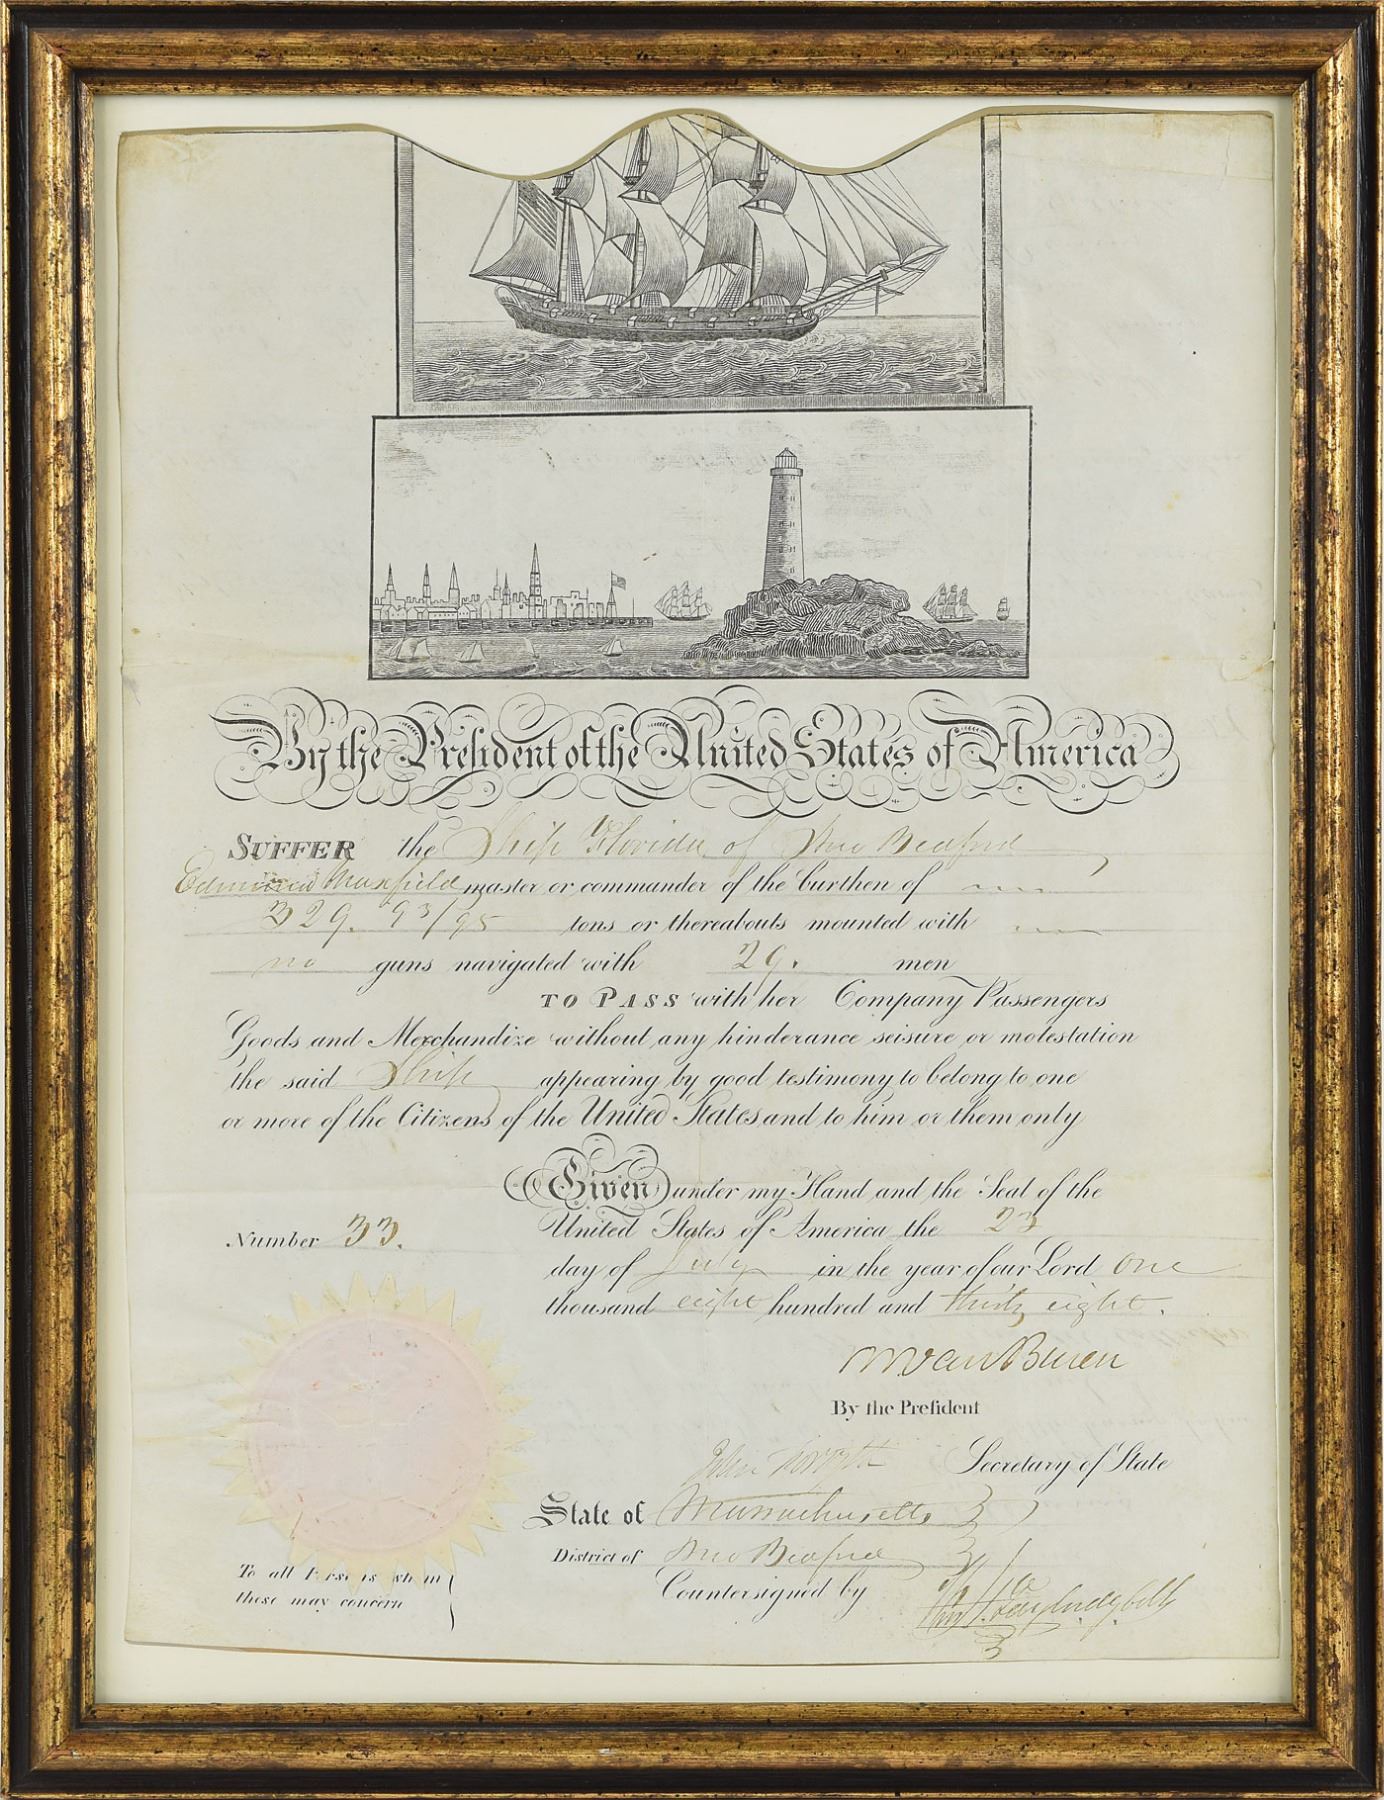 By the President of the United States of America
SUFFER the Ship Florida of New Bedford
Edmund Maxfield master or commander of the burthen of
329. 93/95 tons or thereabouts mounted with
no guns navigated with 29. men
TO PASS with her Company Passengers
Goods and Merchandize without any hinderance seisure or molestation
the said Ship appearing by good testimony to belong to one
or more of the Citizens of the United States and to him or them only
Given under my Hand and the Seal of the
Number 33. United States of America the 23
day of July in the year of our Lord One
thousand eight hundred and thirty eight.
M Van Buren
By the President
John Forsyth Secretary of State
State of Massachusetts
District of New Bedford
To all Persons whom
these may concern
Countersigned by